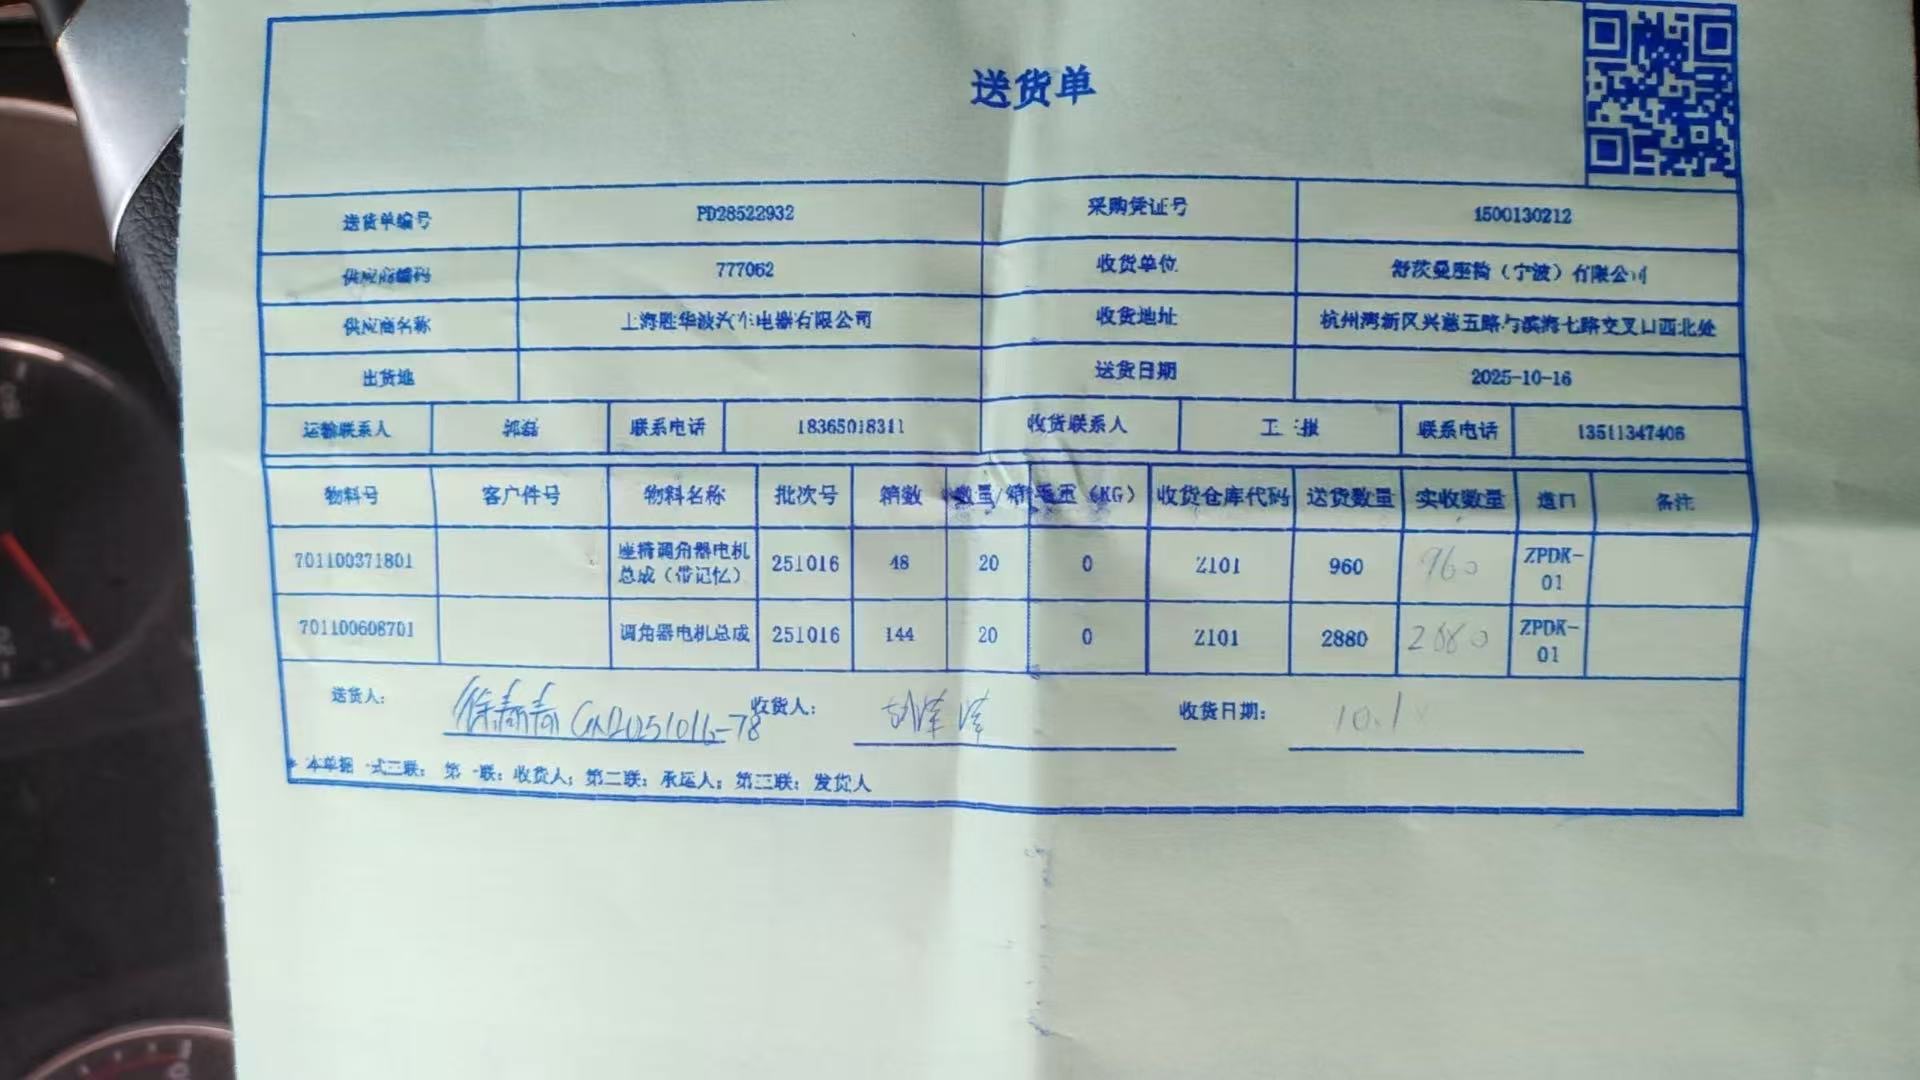 送货单
送货单编号 PD28522932 采购凭证号 1500130212
供应商编码 777062 收货单位 舒茨曼座椅（宁波）有限公司
供应商名称 上海胜华波汽车电器有限公司 收货地址 杭州湾新区兴慈五路与滨海七路交叉口西北处
出货地 送货日期 2025-10-16
运输联系人 郭磊 联系电话 18365018311 收货联系人 联系电话 13511347406
物料号 客户件号 物料名称 批次号 箱数 数量/箱 毛重（KG） 收货仓库代码 送货数量 实收数量 道口 备注
701100371801 座椅调角器电机总成（带记忆） 251016 48 20 0 Z101 960 960 ZPDK-01
701100608701 调角器电机总成 251016 144 20 0 Z101 2880 2880 ZPDK-01
送货人： 收货人： 收货日期：
* 本单据一式三联：第一联：收货人；第二联：承运人；第三联：发货人